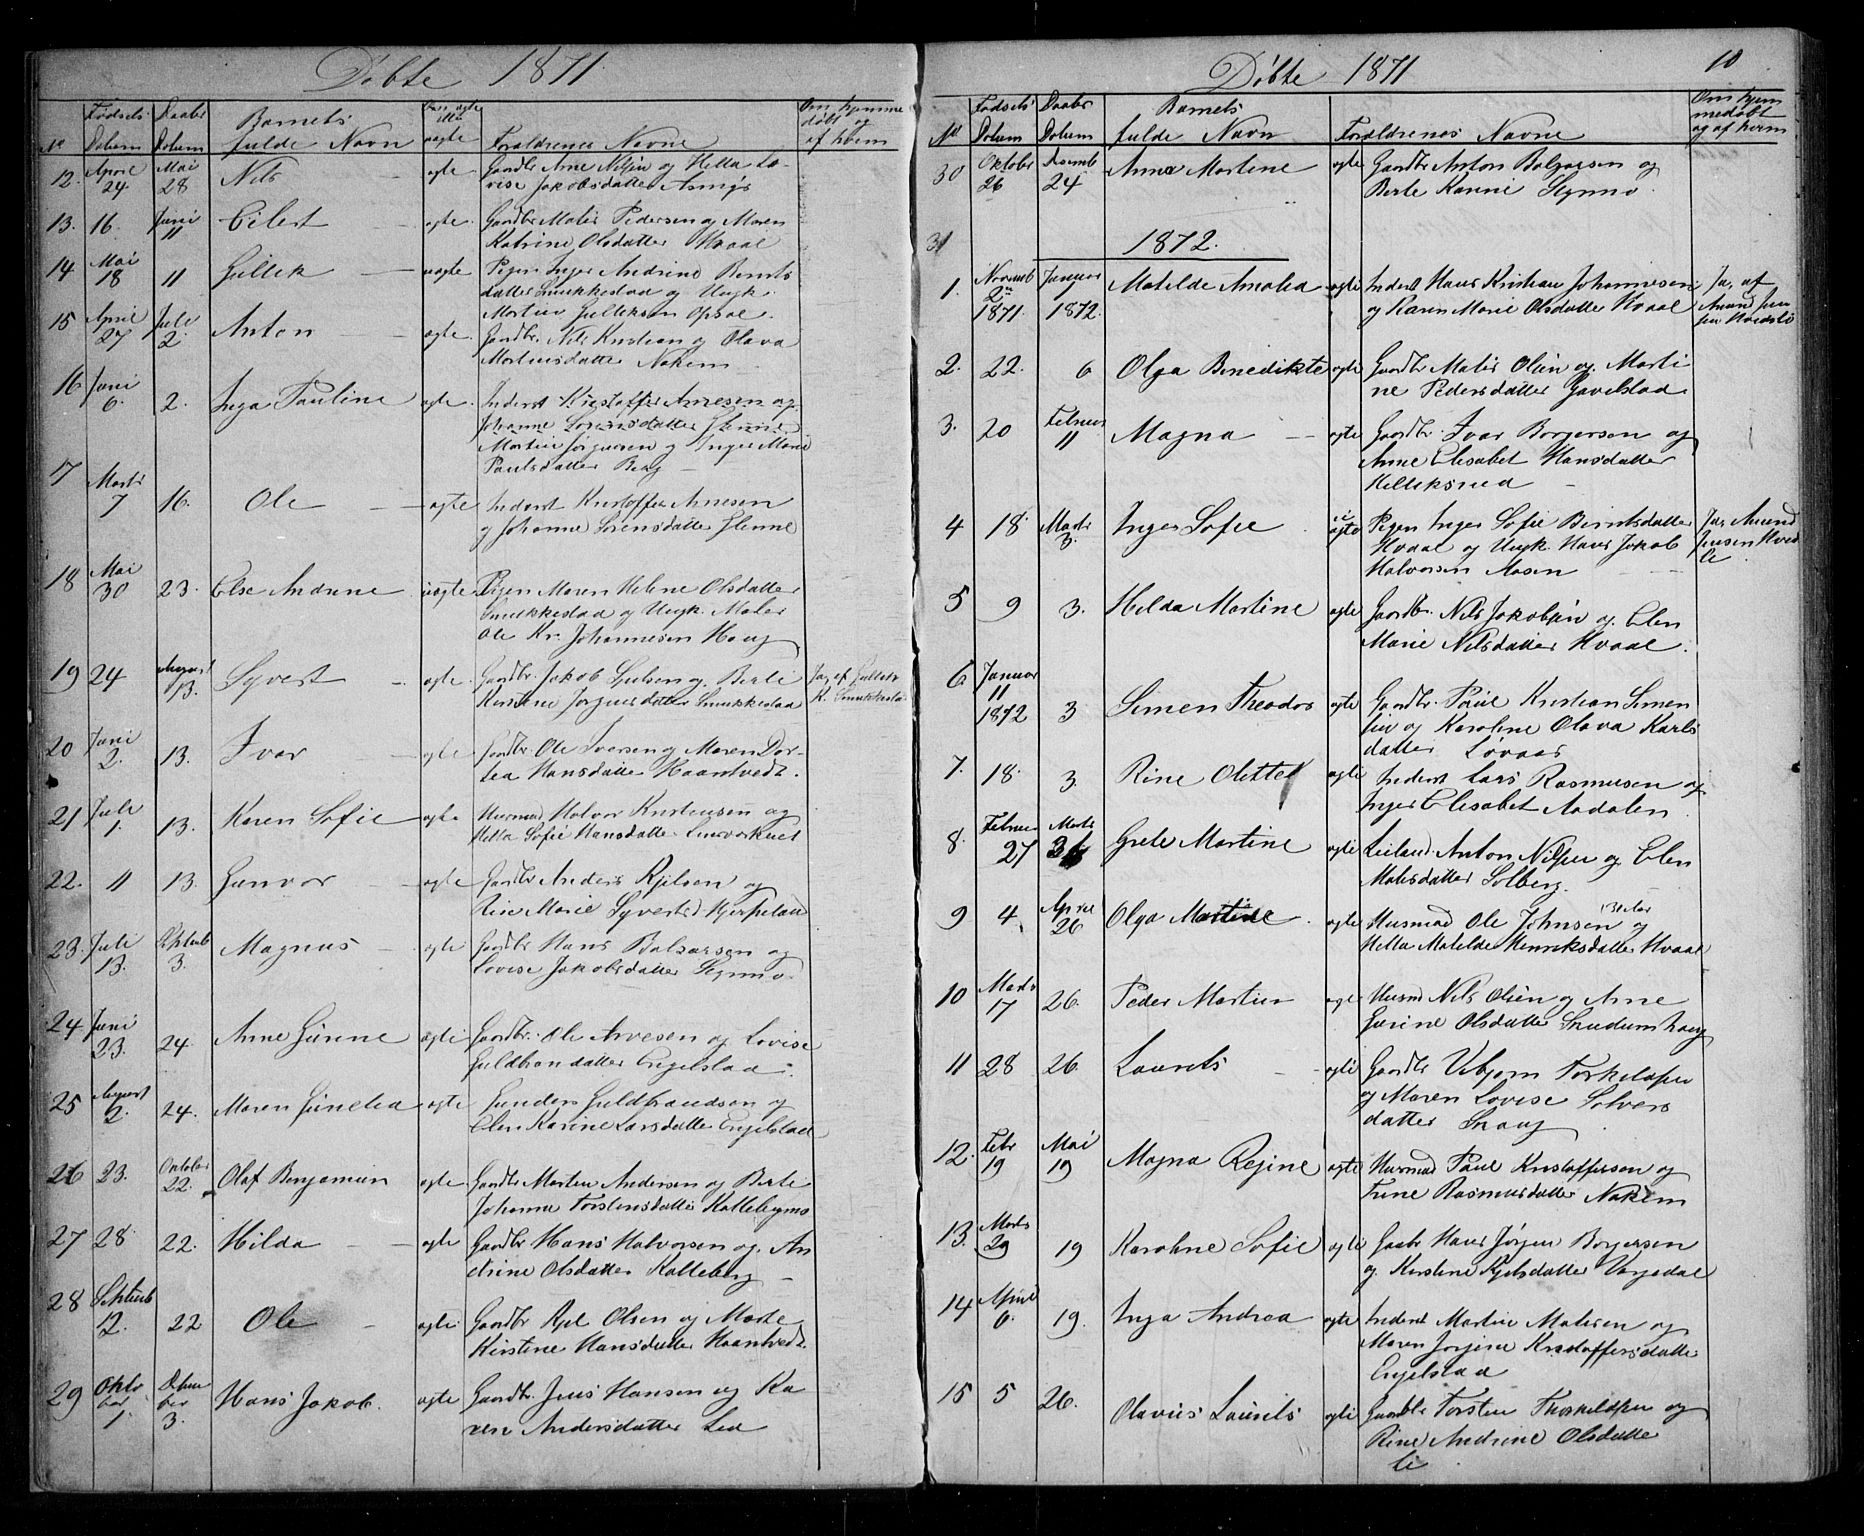 Døbte 1871.
No Fødsels Datum Daabs Datum Barnets fulde Navn ægte Forældrenes Navne Om hjemmedøbt og af hvem
12. April 24 Mai 28 Nils ægte Gaardbr Arne Nilsen og Hella Lo-
vise Jakobsdatter
13. 16. Juni 11 Eilert ægte Gaardbr Mates Pedersen og Maren
Katrine Olsdatter Hvaal
14 Mai 18 11 Gullek uægte Pigen Inger Andrine Bernts
datter Smukkestad og Ungk.
Martin Gulleksen Opsal.
15 April 27 Juli 2. Anton ægte Gaardbr. Nils Kristian og Olava
Mortensdatter Nakem
16 Juni 6. 2. Inga Pauline ægte Inderst Kristoffer Arnesen og
Johanne Sørensdatter Flenne
Martin Jørgensen og Inger Marie
Paulsdatter Berg
17 Marts 7 16. Ole ægte Inderst Kristoffer Arnesen
og Johanne Sørensdatter Flenne
18 Mai 30 23. Else Andrine uægte Pigen Maren Helene Olsdatter
Smukkestad og Ungk. Maler
Ole Kr. Johannesen Haug
19 24 August 13. Syvert ægte Gaardbr. Jakob og Berte
Kirstine Jørgensdatter Smukkestad Ja, af K. Smukkestad
20 Juni 2. 13. Ivar ægte Gaardbr. Ole Iversen og Maren Dor-
tea Hansdatter Haantvedt.
21 Juli 1. 13. Karen Sofie ægte Husmd Halvor Kristensen og
Hella Sofie Hansdatter
22. 11 13. Gunvor ægte Gaardbr Anders Kjelsen og
Rine Marie Syvertsd
23. Juli 13. Septemb 3. Magnus ægte Gaardbr Hans Balsarsen og
Lovise Jakobsdatter Stymmo.
24 Juni 23. 24. Anne Gurine ægte Gaardbr. Ole Arvesen og Lovise
Guldbrandatter Engelstad.
25 August 2. 24. Maren Gunelia ægte Gunder Guldbrandson og
Elen Karine Larsdatter Engelstad
26 23. Oktober 22. Olaf Benjamin ægte Gaardbr Morten Andersen og Berte
Johanne Torstensdatter
27 28. 22. Hilda ægte Gaardbr Hans Halvorsen og An
drine Olsdatter Kalleberg
28 Septemb 12. 22 Ole ægte Gaardbr Kjel Olsen og Marte
Kirstine Hansdatter Haantvedt.
29 Oktober 1. December 3. Hans Jakob. ægte Gaardbr. Jens Hansen og Ka
ren Andersdatter Lea
Døbte 1871 10
No Fødsels Datum Daabs Datum Barnets fulde Navn Forældrenes Navne Om hjemmedøbt og af hvem
30 Oktober 26 Decemb 24 Anne Martine ægte Gaardbr Anton Balzarsen og
Berte Karine Stymmo.
31 1872.
1. Novemb 2 1871. Januar 1 1872. Matilde Amalia ægte Inderst Hans Kristian Johannesen
og Karen Marie Olsdatter Hvaal Ja, af Amund Jensen Hvedsli
2. 22. 6 Olga Benedikte ægte Gaardbr Mates Olsen og Marti
ne Pedersdatter Gavelstad
3. 20 Februar 11 Magna ægte Gaardbr. Ivar Borgersen og
Anne Elisabet Hansdatter
Helleksrud
4 18. Marts 3. Inger Sofie uægte Pigen Inger Sofie Berntsdatter
Hvaal og Ungk. Hans Jakob
Halvorsen Aasen Ja, Amund Jensen Hvedsli.
5 9 3. Helda Martine ægte Gaardbr. Nils Jakobsen og Elen
Marie Nilsdatter Hvaal.
6 Januar 11 1872 3 Simen Theodor ægte Gaardbr. Paul Kristian Simen
sen og Karoline Olava Karls
datter Lovaas
7. 18. 3. Rine Olette ægte Inderst Lars Rasmusen og
Inger Elisabet Aadalen
8. Februar 27 Marts Grete Martine ægte Leiland. Anton Nilsen og Elen
Matesdatter Solberg.
9 4 April 26 Olga Martine ægte Husmd Ole Johnsen og
Hella Matilde Henriksdatter Hvaal
10 Marts 17 26. Peder Martin ægte Husmd Nils Olsen og Anne
Gurine Olsdatter
11 28 26. Laurits ægte Gaardbr Vebjørn Torkelsen
og Maren Lovise Solvers
datter Skaug
12. Febr 19 Mai 19 Magna Regine ægte Husmd Paul Kristoffersen og
Trine Rasmusdatter Nakem
13. Marts 29 19 Karoline Sofie ægte Gaabr Hans Jørgen Borgersen
og Kirstine Kjelsdatter
14 April 6. 19. Inga Andrea ægte Inderst Martin Matesen og
Maren Jørgine Kristoffersdatter
Engelstad
15 5 26. Olavus Laurits ægte Gaardbr Torsten Thorkeldsen og
Rine Andrine Olsdatter
Li